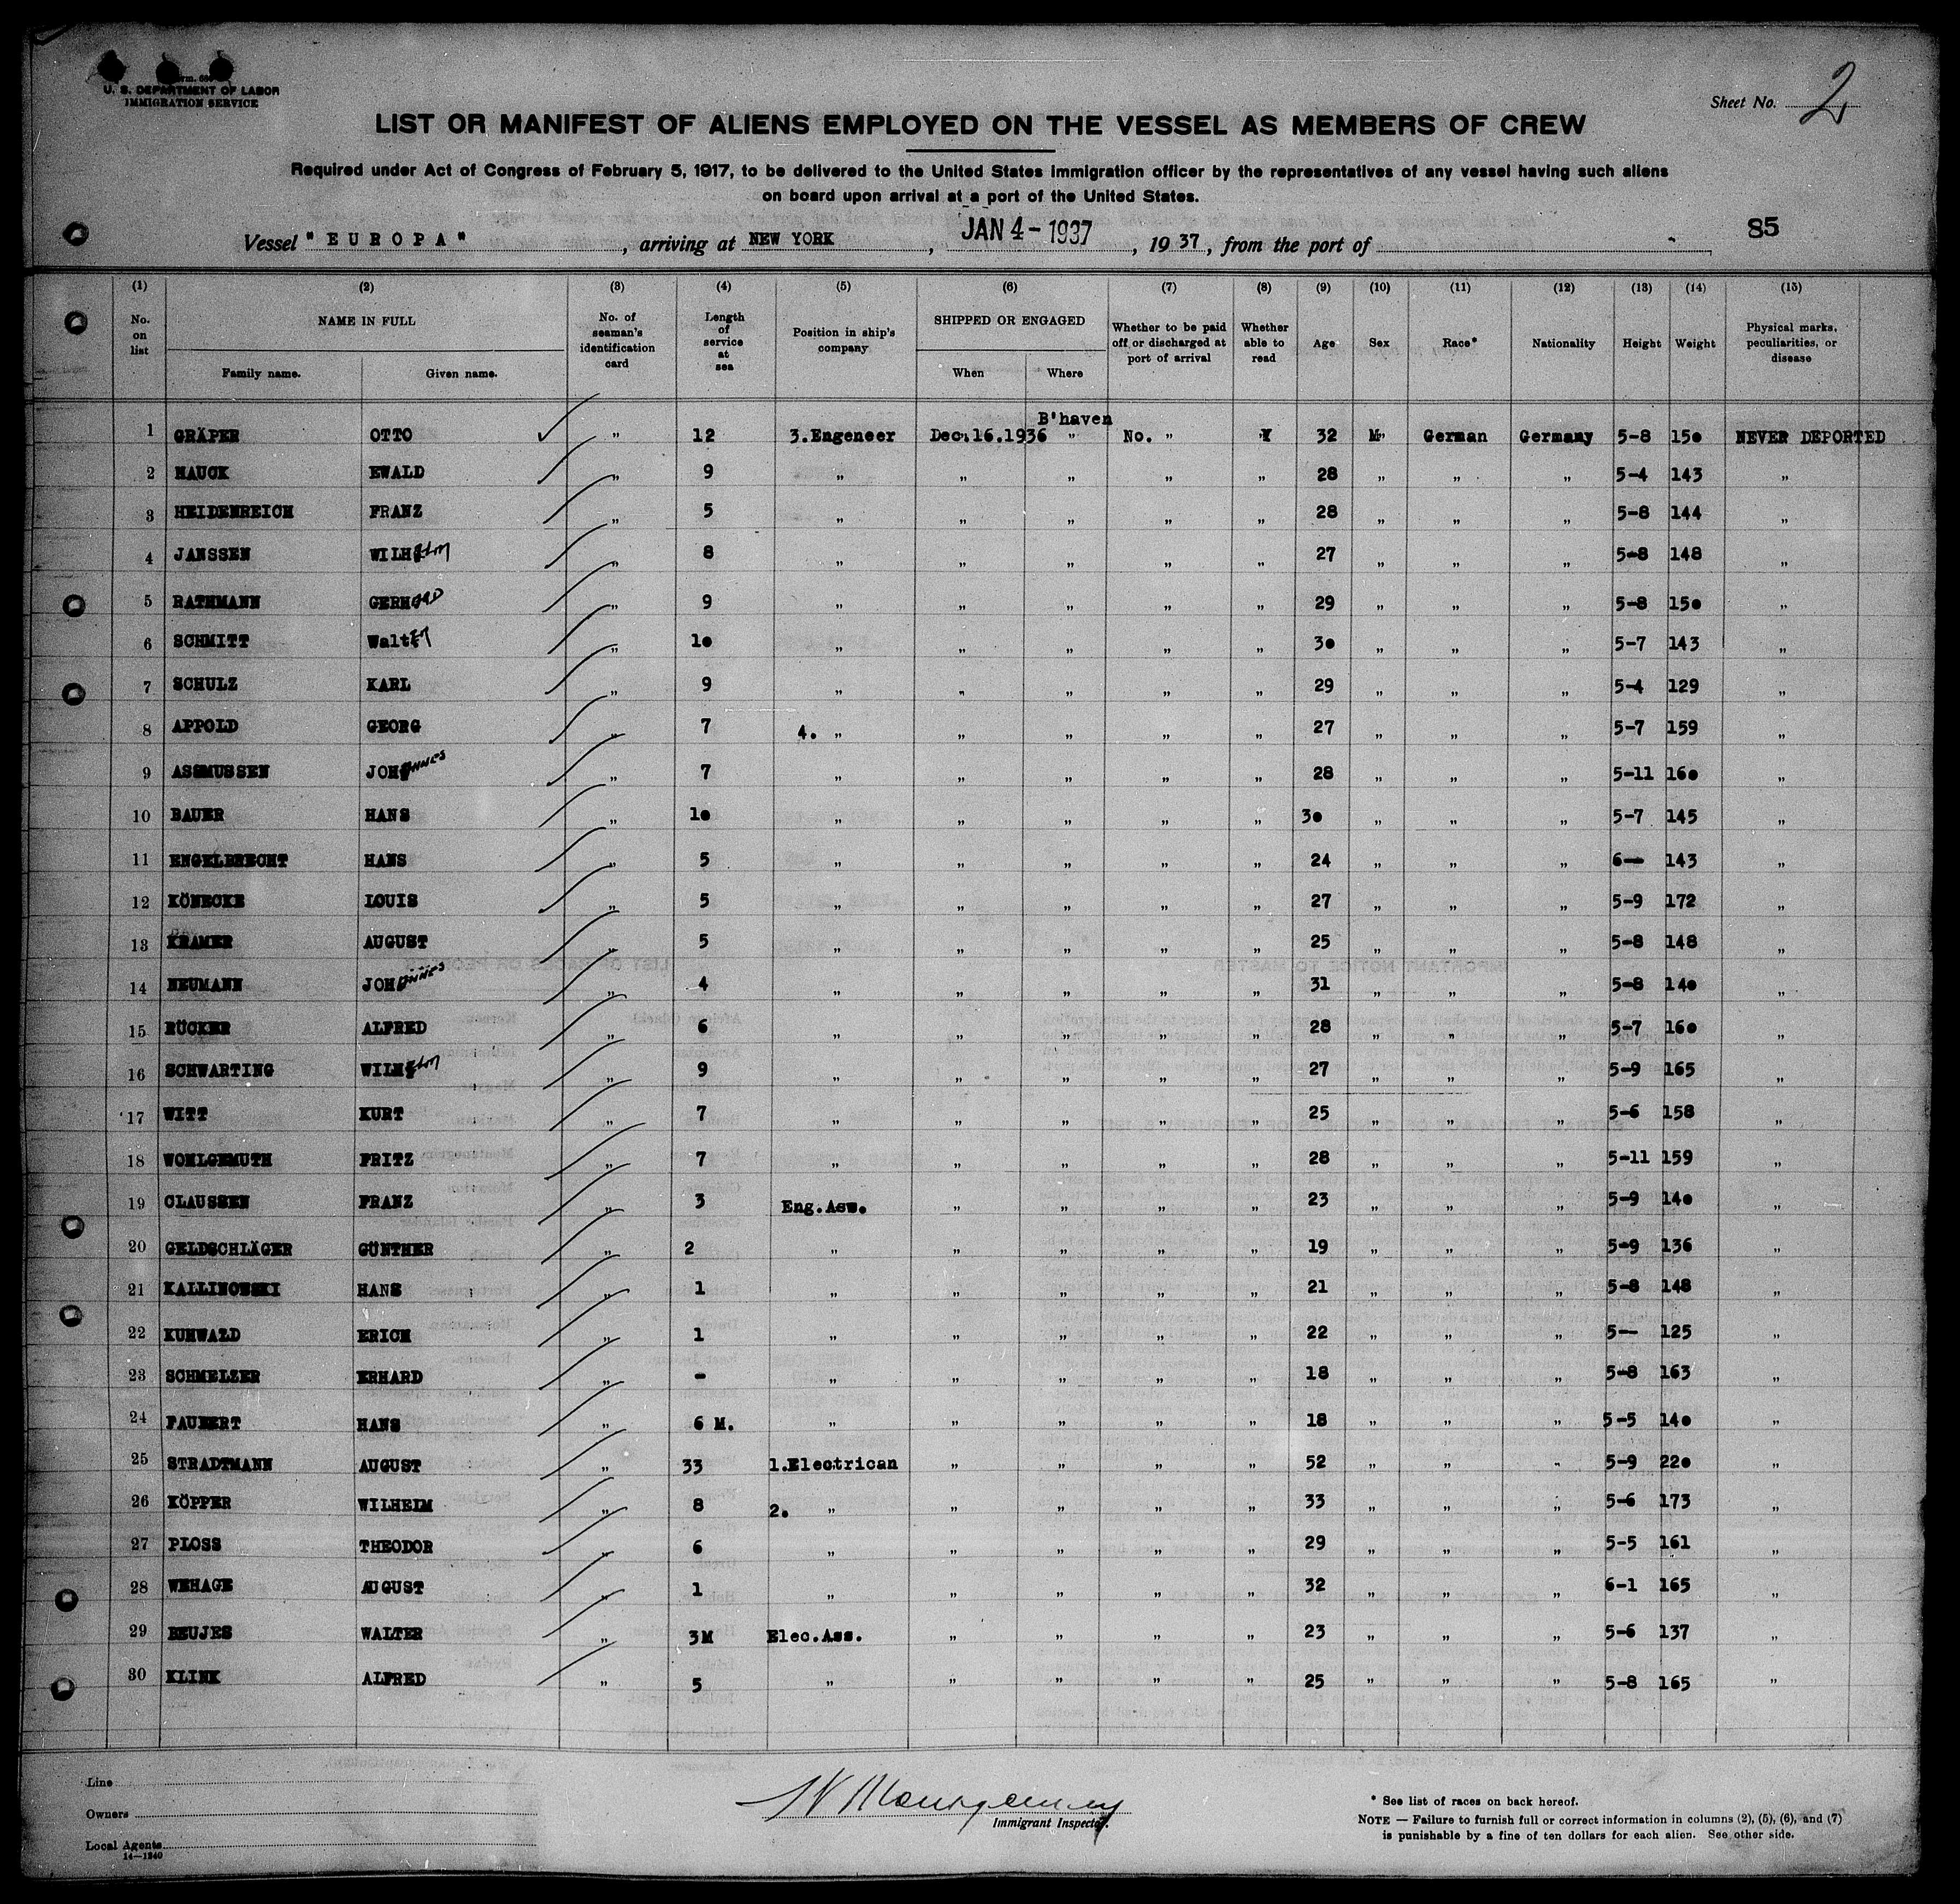 Form. 680
U. S. DEPARTMENT OF LABOR
IMMIGRATION SERVICE
Sheet No. 2
LIST OR MANIFEST OF ALIENS EMPLOYED ON THE VESSEL AS MEMBERS OF CREW
Required under Act of Congress of February 5, 1917, to be delivered to the United States immigration officer by the representatives of any vessel having such aliens
on board upon arrival at a port of the United States.
Vessel "EUROPA", arriving at NEW YORK, JAN 4-1937, 1937, from the port of
85
(1) (2) (3) (4) (5) (6) (7) (8) (9) (10) (11) (12) (13) (14) (15)
No. on list NAME IN FULL Family name. Given name. No. of seaman's identification card Length of service at sea Position in ship's company SHIPPED OR ENGAGED When Where Whether to be paid off or discharged at port of arrival Whether able to read Age Sex Race* Nationality Height Weight Physical marks, peculiarities, or disease
1 GRÄPER OTTO " 12 3.Engeneer Dec.16.1936 B'haven " No. " Y 32 M" German Germany 5-8 150 NEVER DEPORTED
2 HAUCK EWALD " 9 " " " " " 28 " " " 5-4 143 "
3 HEIDENREICH FRANZ " 5 " " " " " 28 " " " 5-8 144 "
4 JANSSEN WILHelm " 8 " " " " " 27 " " " 5-8 148 "
5 RATHMANN GERHARD " 9 " " " " " 29 " " " 5-8 150 "
6 SCHMITT Walter " 10 " " " " " 30 " " " 5-7 143 "
7 SCHULZ KARL " 9 " " " " " 29 " " " 5-4 129 "
8 APPOLD GEORG " 7 4. " " " " " 27 " " " 5-7 159 "
9 ASSMUSSEN JOHannes " 7 " " " " " 28 " " " 5-11 160 "
10 BAUER HANS " 10 " " " " " 30 " " " 5-7 145 "
11 ENGELBRECHT HANS " 5 " " " " " 24 " " " 6— 143 "
12 KÖNECKE LOUIS " 5 " " " " " 27 " " " 5-9 172 "
13 KRAMER AUGUST " 5 " " " " " 25 " " " 5-8 148 "
14 NEUMANN JOHannes " 4 " " " " " 31 " " " 5-8 140 "
15 RÜCKER ALFRED " 6 " " " " " 28 " " " 5-7 160 "
16 SCHWARTING WILHelm " 9 " " " " " 27 " " " 5-9 165 "
17 WITT KURT " 7 " " " " " 25 " " " 5-6 158 "
18 WOHLGEMUTH FRITZ " 7 " " " " " 28 " " " 5-11 159 "
19 CLAUSSEN FRANZ " 3 Eng.Ass. " " " " 23 " " " 5-9 140 "
20 GELDSCHLÄGER GÜNTHER " 2 " " " " " 19 " " " 5-9 136 "
21 KALLINOWSKI HANS " 1 " " " " " 21 " " " 5-8 148 "
22 KUHWALD ERICH " 1 " " " " " 22 " " " 5— 125 "
23 SCHMELZER ERHARD " - " " " " " 18 " " " 5-8 163 "
24 FAUBERT HANS " 6 M. " " " " " 18 " " " 5-5 140 "
25 STRADTMANN AUGUST " 33 1.Electrican " " " " 52 " " " 5-9 220 "
26 KÖPPER WILHEIM " 8 2. " " " " " 33 " " " 5-6 173 "
27 PLOSS THEODOR " 6 " " " " " 29 " " " 5-5 161 "
28 WEHAGE AUGUST " 1 " " " " " 32 " " " 6-1 165 "
29 BEUJES WALTER " 3M Elec.Ass. " " " " 23 " " " 5-6 137 "
30 KLINK ALFRED " 5 " " " " " 25 " " " 5-8 165 "
Line
Owners
Local Agents
14—1240
Montgomery
Immigrant Inspector.
* See list of races on back hereof.
NOTE — Failure to furnish full or correct information in columns (2), (5), (6), and (7)
is punishable by a fine of ten dollars for each alien. See other side.